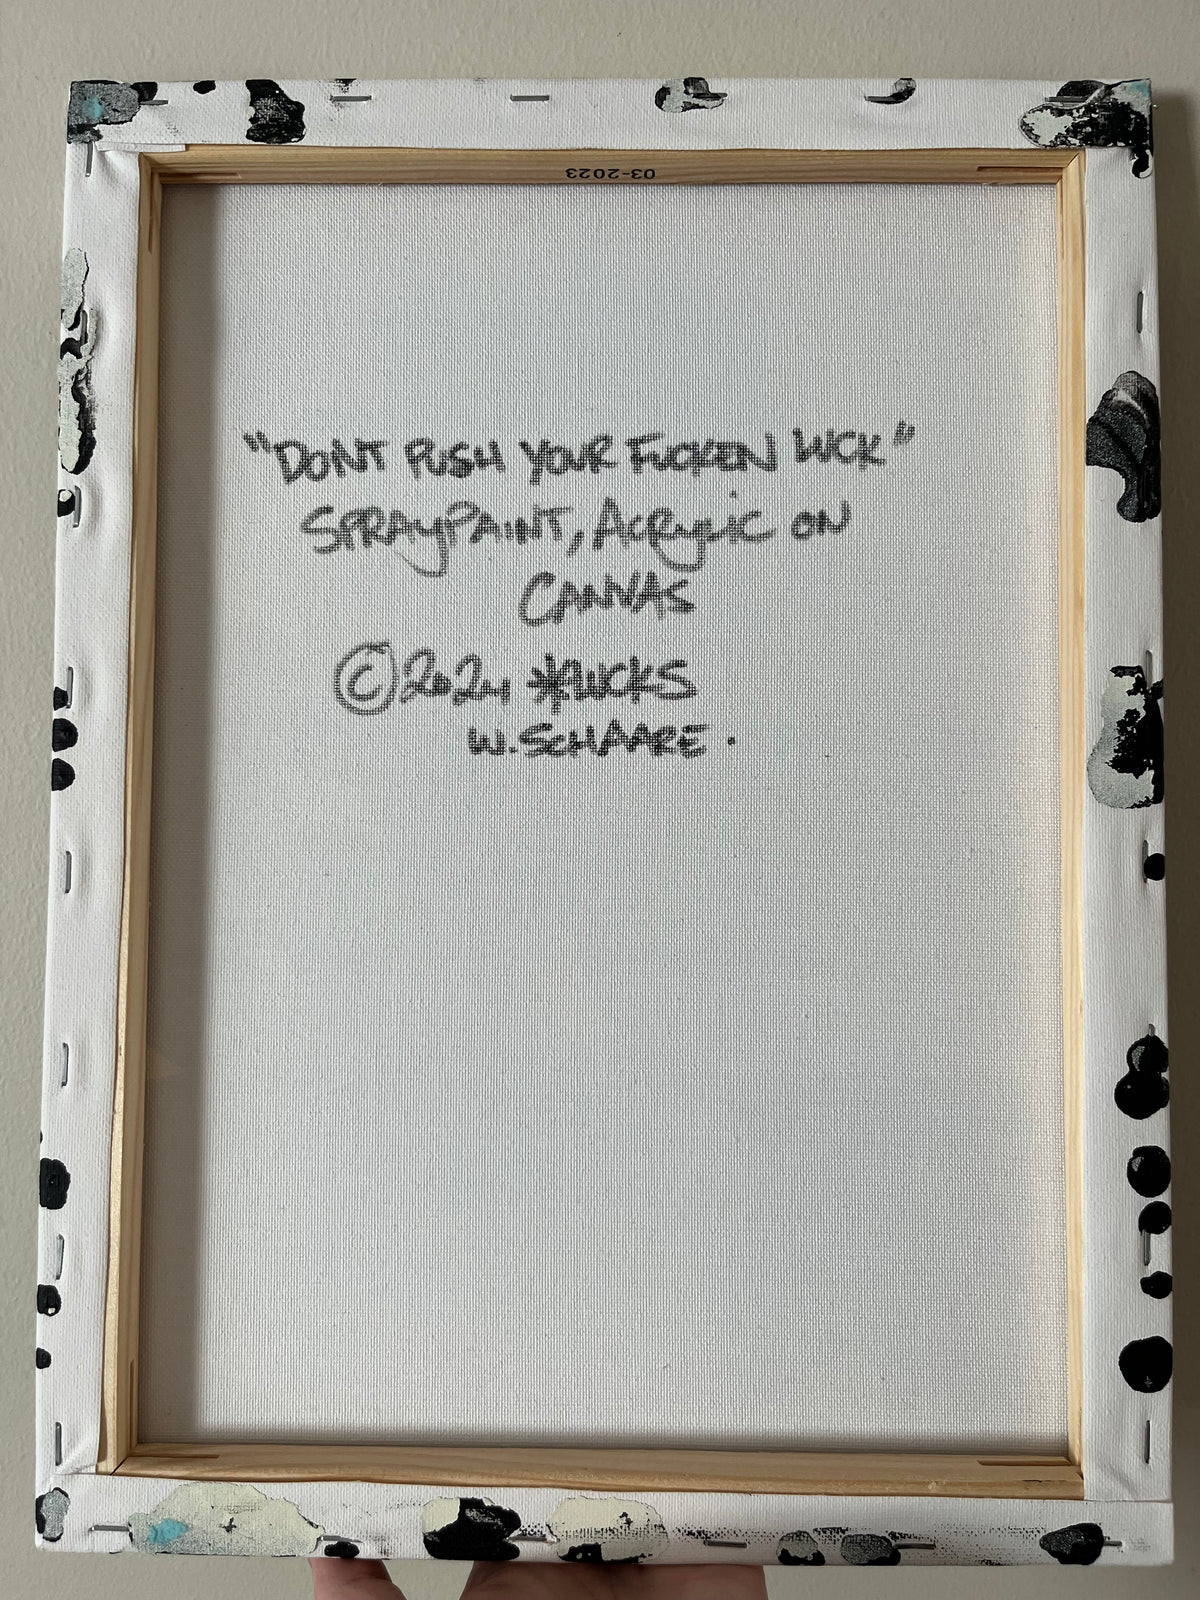 03-2023
"DONT PUSH YOUR FUCKEN LUCK"
SPRAYPAINT, ACRYLIC ON
CANVAS
©2024 *LUCKS
W. SCHAARE.